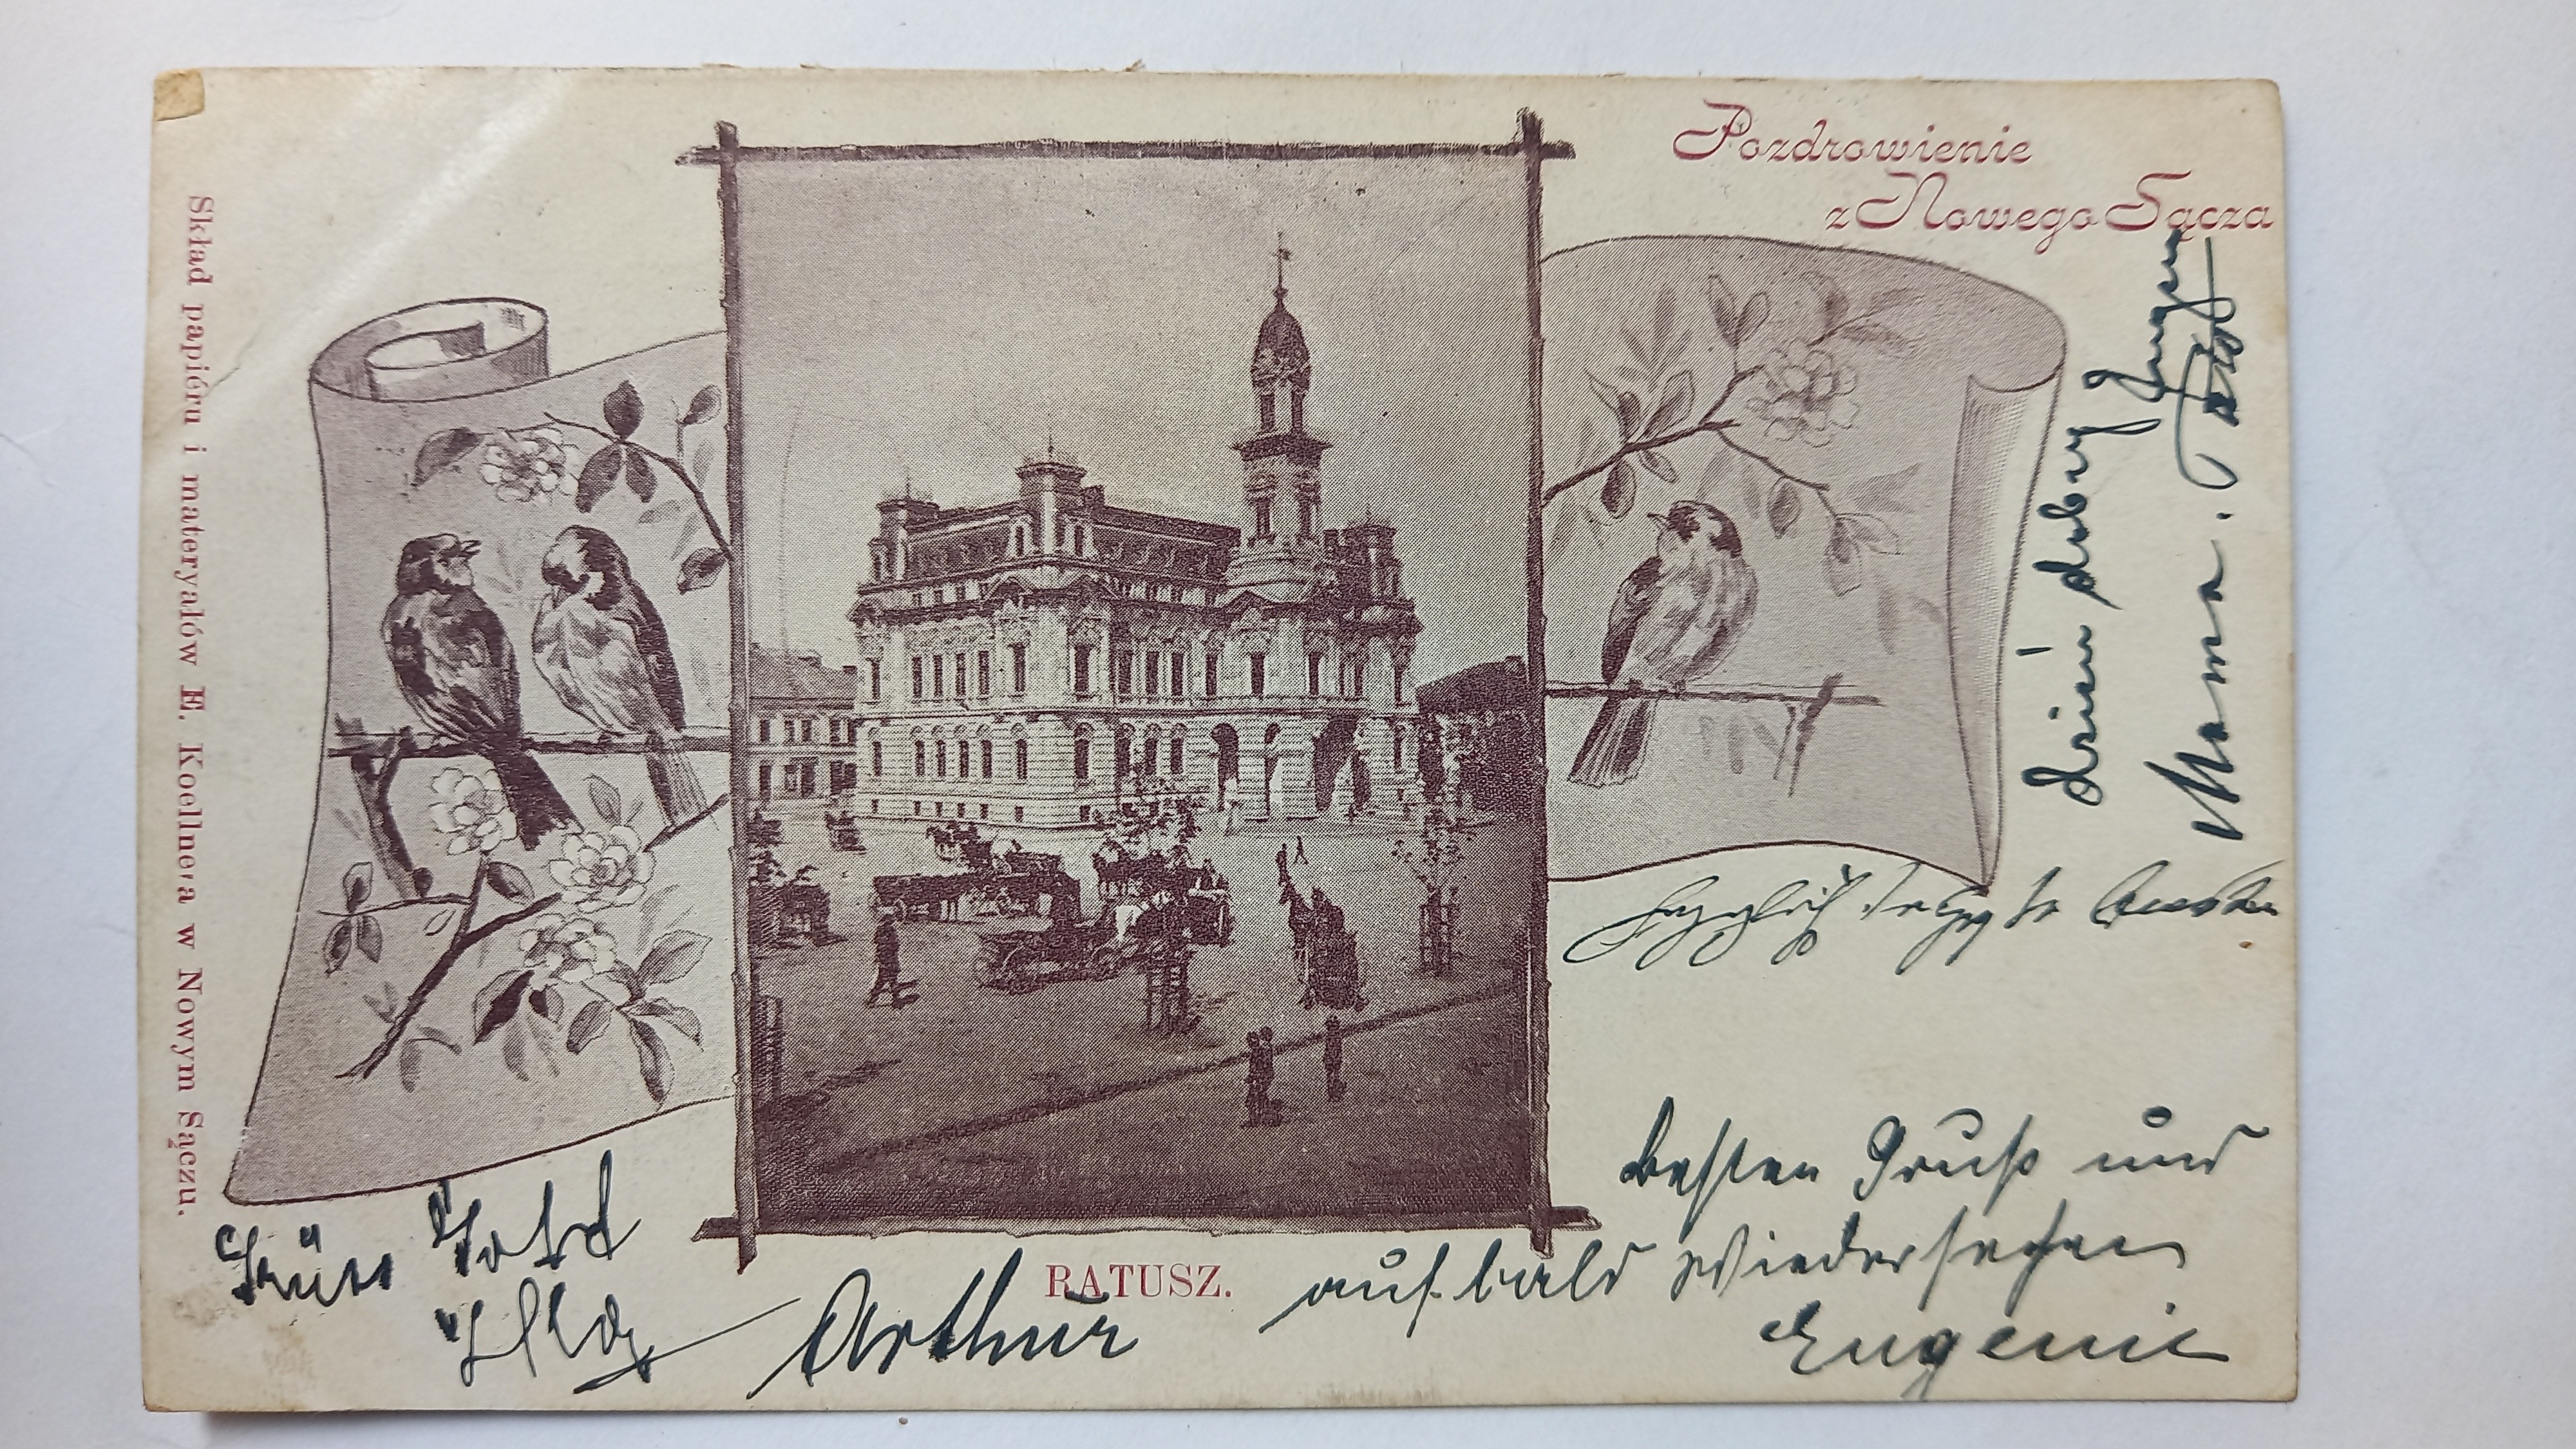 Pozdrowienie
z Nowego Sącza
Skład papiéru i materyałów E. Koellnera w Nowym Sączu.
dzień dobry
Mama.
Herzlich
besten Gruß und
auf bald Wiedersehen
Eugenie
RATUSZ.
Arthur